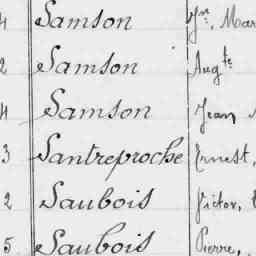 4 Samson Jn, Mar
2 Samson Augte
4 Samson Jean
3 Santreproche Ernest,
2 Saubois Victor,
5 Saubois Pierre,